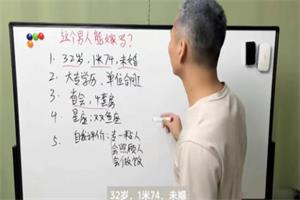 这个男人能嫁吗?
1. 32岁，1米74，未婚
2. 大专学历，单位合同
3. 有房，4套房
4. 星座：XX鱼座
5. 自我评价：专一粘人
会照顾人
会做饭
32岁，1米74，未婚